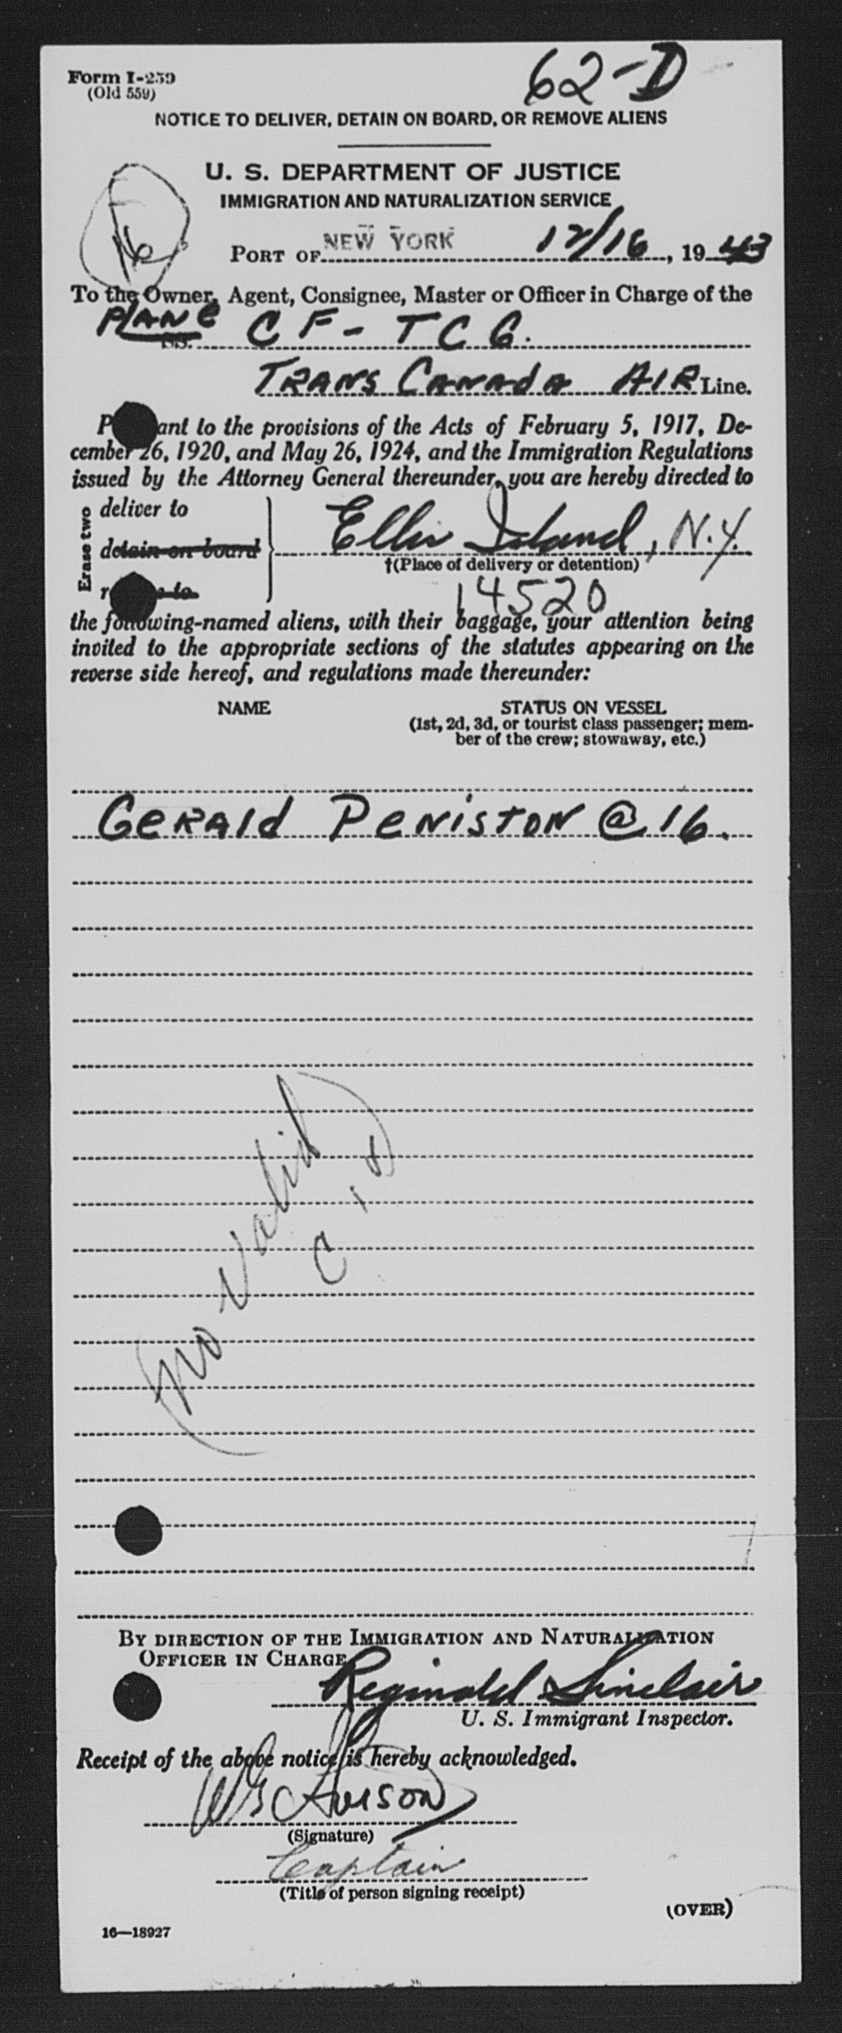 Form I-259
(Old 559)
62-D
NOTICE TO DELIVER, DETAIN ON BOARD, OR REMOVE ALIENS
U. S. DEPARTMENT OF JUSTICE
IMMIGRATION AND NATURALIZATION SERVICE
16
PORT OF NEW YORK 12/16, 1943
To the Owner, Agent, Consignee, Master or Officer in Charge of the
PLANE SS. CF-TCG.
TRANS CANADA AIR Line.
P ant to the provisions of the Acts of February 5, 1917, De-
cember 26, 1920, and May 26, 1924, and the Immigration Regulations
issued by the Attorney General thereunder, you are hereby directed to
Erase two
deliver to
detain on board
Ellis Island, N.Y.
†(Place of delivery or detention)
r to
14520
the following-named aliens, with their baggage, your attention being
invited to the appropriate sections of the statutes appearing on the
reverse side hereof, and regulations made thereunder:
NAME STATUS ON VESSEL
(1st, 2d, 3d, or tourist class passenger; mem-
ber of the crew; stowaway, etc.)
GERALD PENISTON @ 16.
(no valid
C.
BY DIRECTION OF THE IMMIGRATION AND NATURALIZATION
OFFICER IN CHARGE
Reginald Sinclair
U. S. Immigrant Inspector.
Receipt of the above notice is hereby acknowledged.
(Signature)
Captain
(Title of person signing receipt)
(OVER)
16—18927